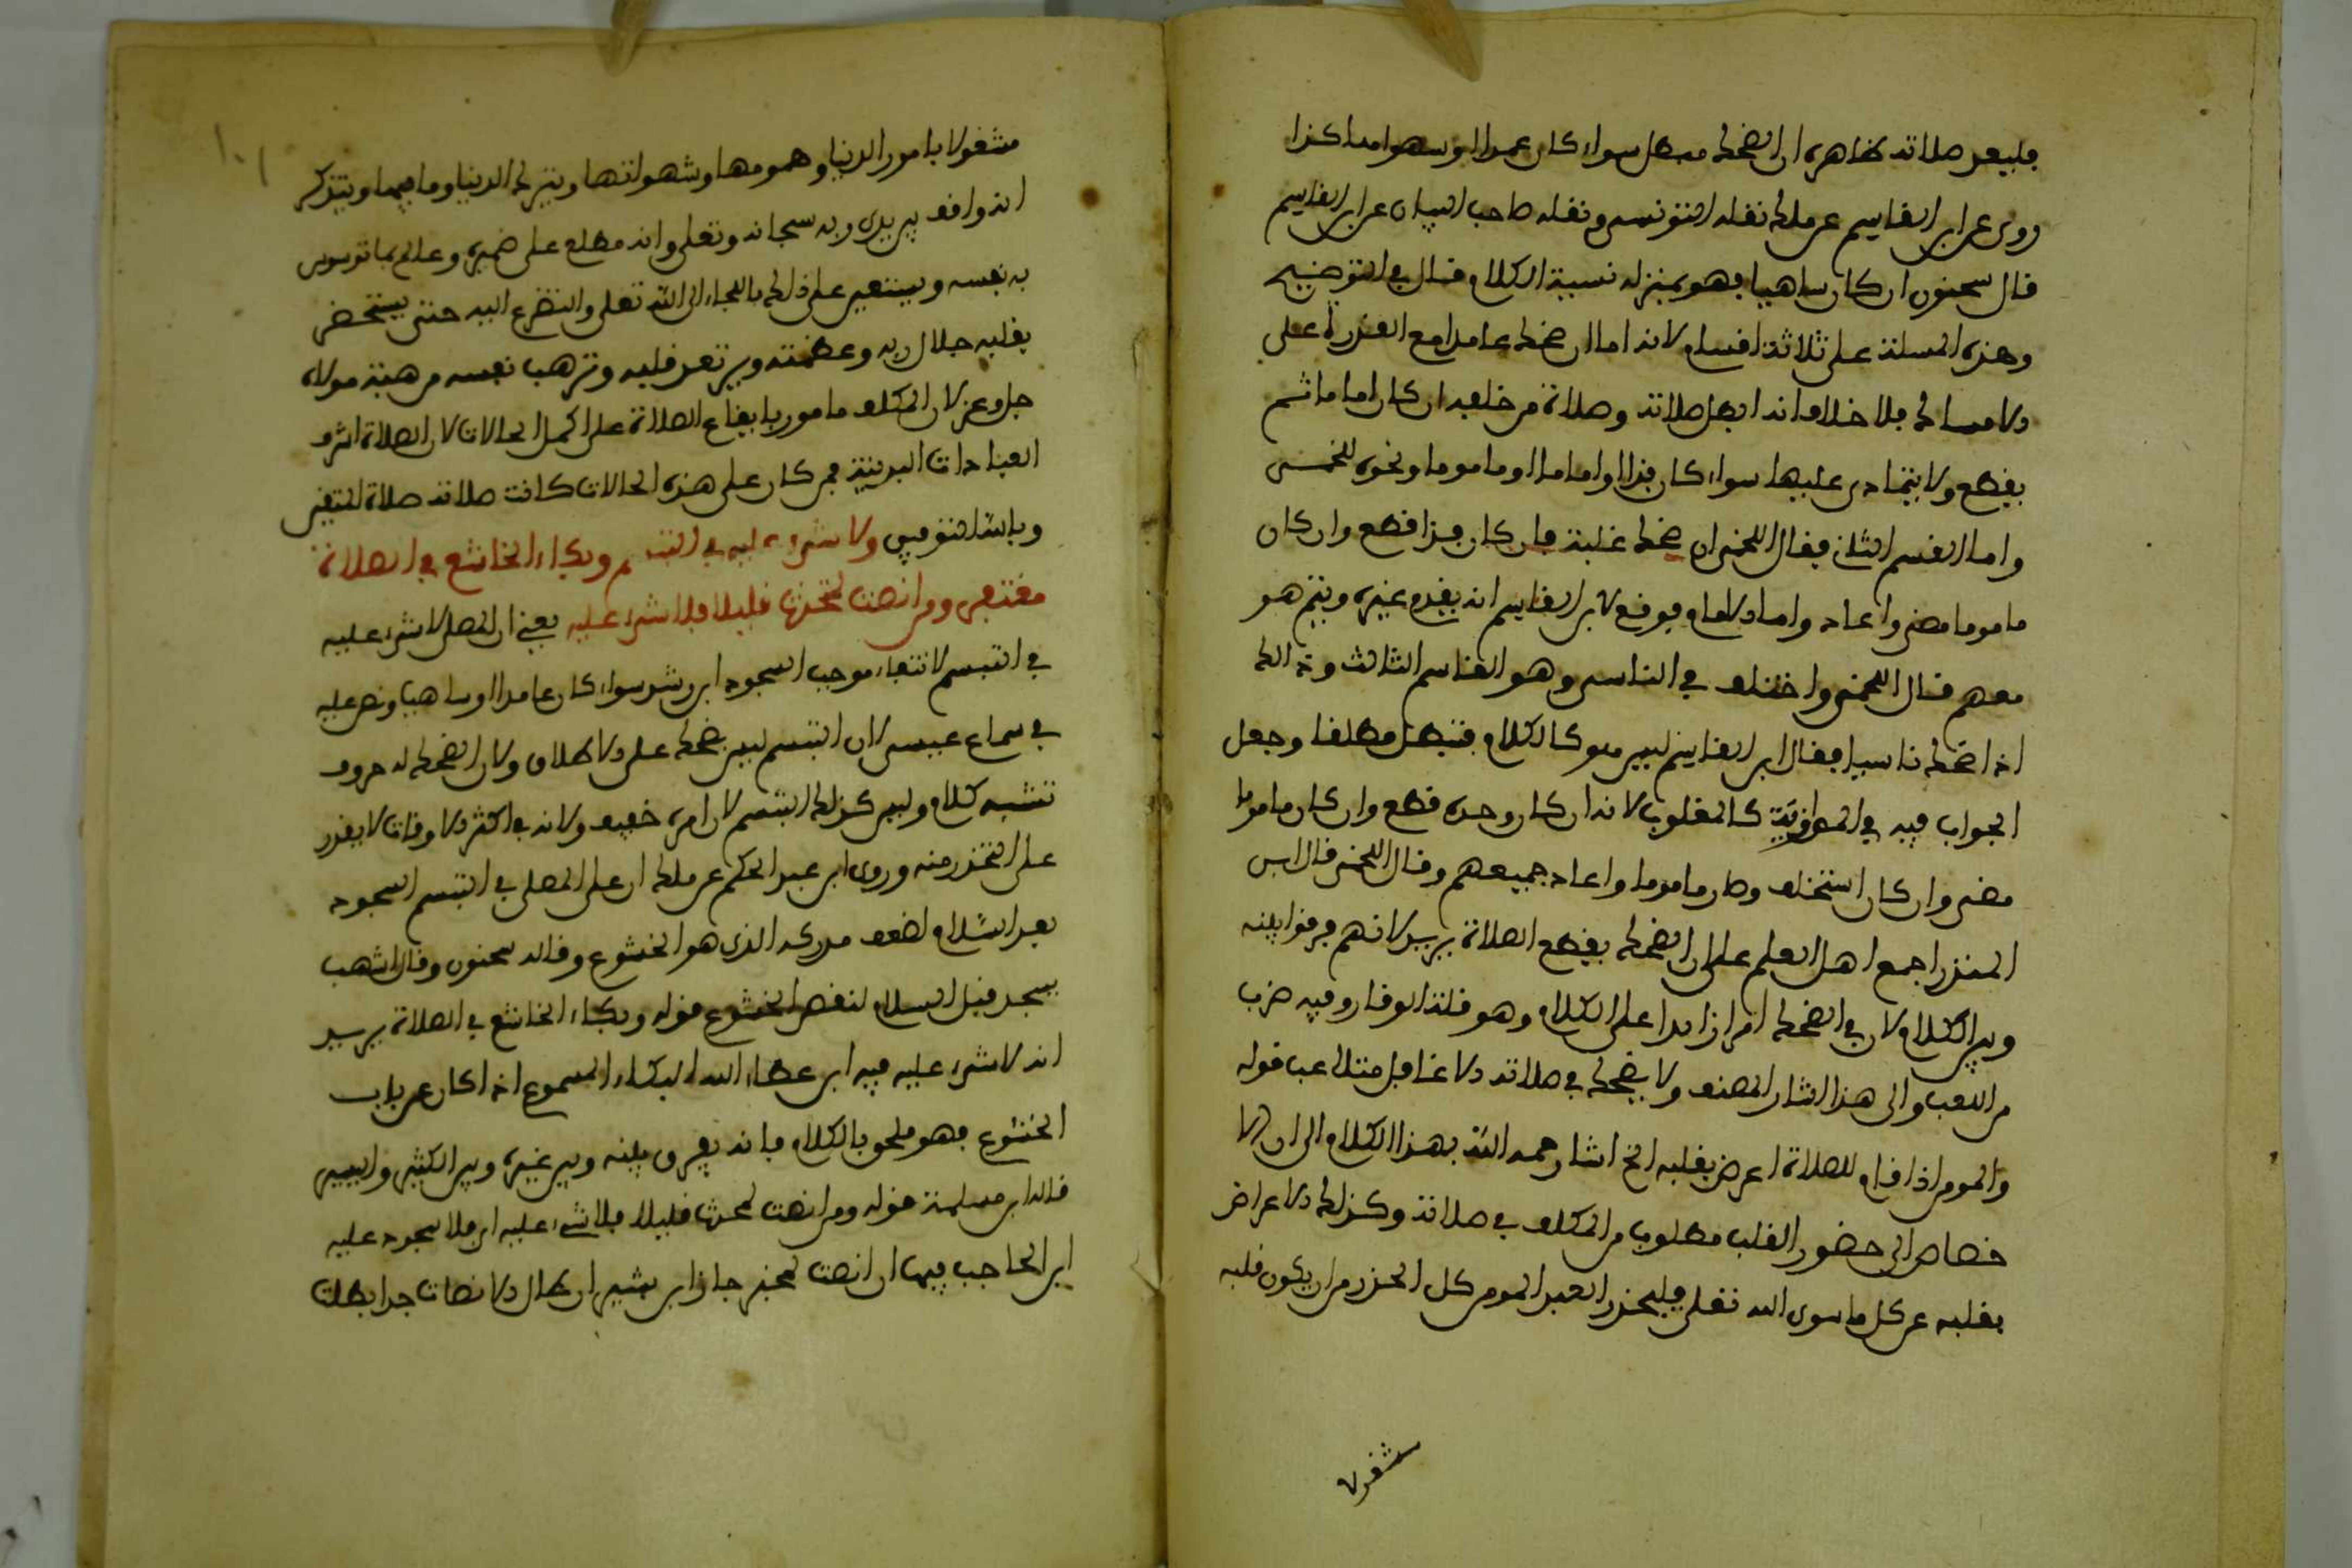 فليعد صلاته ظاهره ان الضحك مبطل سواء كان عمدا او سهوا هكذا
روى عن ابن القاسم عن ملك نقله التونسي ونقله صاحب البيان عن ابن القاسم
قال سحنون ان كان ساهيا فهو بمنزلة نسية الكلام قال في التوضيح
وهذه المسئلة على ثلاثة اقسام لانه اما ان ضحك عامدا مع القدرة على
الامساك فلا خلاف انه ابطل صلاته وصلاة من خلفه ان كان اماما ثم
يقطع ولا يتمادى عليها سواء كان فذا او اماما او ماموما ونحوه للخمي
واما القسم الثاني فقال اللخمي ان ضحك غلبة فان كان فذا قطع وان كان
ماموما مضى واعاد واما الامام فوقع لابن القاسم انه يقدم غيره ويتم هو
معهم قال اللخمي واختلف في الناسي وهو القاسم الثالث وذالك
اذا ضحك ناسيا فقال ابن القاسم ليس هو كالكلام فتبطل مطلقا وجعل
الجواب فيه في الموازية كالمغلوب لانه ان كان وحده قطع وان كان ماموما
مضى وان كان استخلف وصار ماموما واعاد جميعهم وقال اللخمي قال ابن
المنذر اجمع اهل العلم على ان الضحك يقطع الصلاة يريد لانهم فرقوا بينه
وبين الكلام لان في الضحك امرا زايدا على الكلام وهو قلة الوقار وفيه ضرب
من اللعب والى هذا اشار المصنف ولا يضحك في صلاته الا غافل متلاعب قوله
والمومن اذا قام للصلاة اعرض بقلبه الخ اشار رحمه الله بهذا الكلام الى ان لها
خصاص الى حضور القلب مطلوب من المكلف في صلاته وكذلك الاعراض
بقلبه عن كل ما سوى الله تعلى فليحذر العبد المومن كل الحذر من ان يكون قلبه
مشغولا
مشغولا بامور الدنيا وهمومها وشهواتها ويترك الدنيا وما فيها ويتذكر
انه واقف بين يدي ربه سبحانه وتعلى وانه مطلع على ضميره وعالم بما توسوس
به نفسه ويستعين على ذلك باللجاء الى الله تعلى والتضرع اليه حتى يستحضر
بقلبه جلال ربه وعظمته ويرتعد قلبه وترهب نفسه من هيبة مولاه
جل وعز لان المكلف مامور بايقاع الصلاة على اكمل الحالات لان الصلاة اشرف
العبادات البدنية فمن كان على هذه الحالات كانت صلاته صلاة المتقين
وبالله التوفيق ولا شيء عليه في التبسم وبكاء الخاشع في الصلاة
مغتفر ومن انصت لمتحدث قليلا فلا شيء عليه يعني ان المصلي لا شيء عليه
في التبسم لانتفاء موجب السجود ابن رشد سواء كان عامدا او ساهيا ونص عليه
في سماع عيسى لان التبسم ليس بضحك على الاطلاق ولان الضحك له حروف
تشبه كلام وليس كذلك التبسم لان امره خفيف ولانه في اكثر الاوقات لا يقدر
على التحذر منه وروى ابن عبد الحكم عن ملك ان على المصلي في التبسم السجود
بعد السلام لضعف مدركه الذي هو الخشوع وقاله سحنون وقال اشهب
يسجد قبل السلام لنقص الخشوع قوله وبكاء الخاشع في الصلاة يريد
انه لا شيء عليه فيه ابن عطاء الله البكاء المسموع اذا كان عن باب
الخشوع فهو ملحق بالكلام فانه يفرق بينه وبين غيره وبين الكثير واليسير
قاله ابن مسلمة قوله ومن انصت لمحدث قليلا فلا شيء عليه اي فلا سجود عليه
ابن الحاجب فيها ان انصت لمخبر جاز ابن بشير ان طال الانصات جدا بطلت